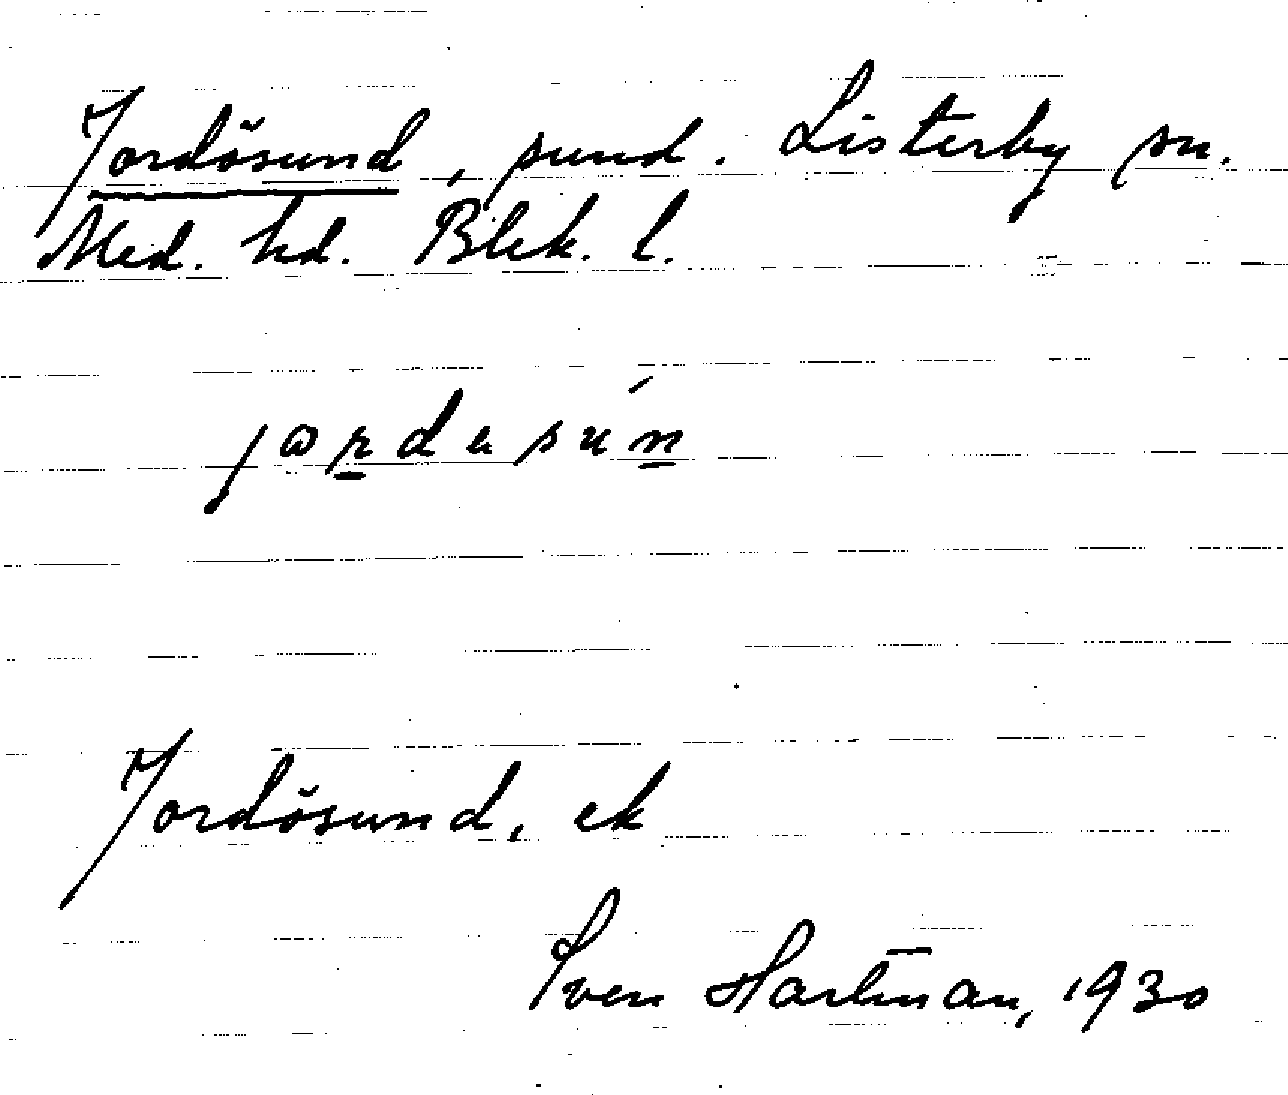 Jordösund, sund. Listerby sn.
Med. hd. Blek. l.
Jordösund, ek
Sven Hartman, 1930